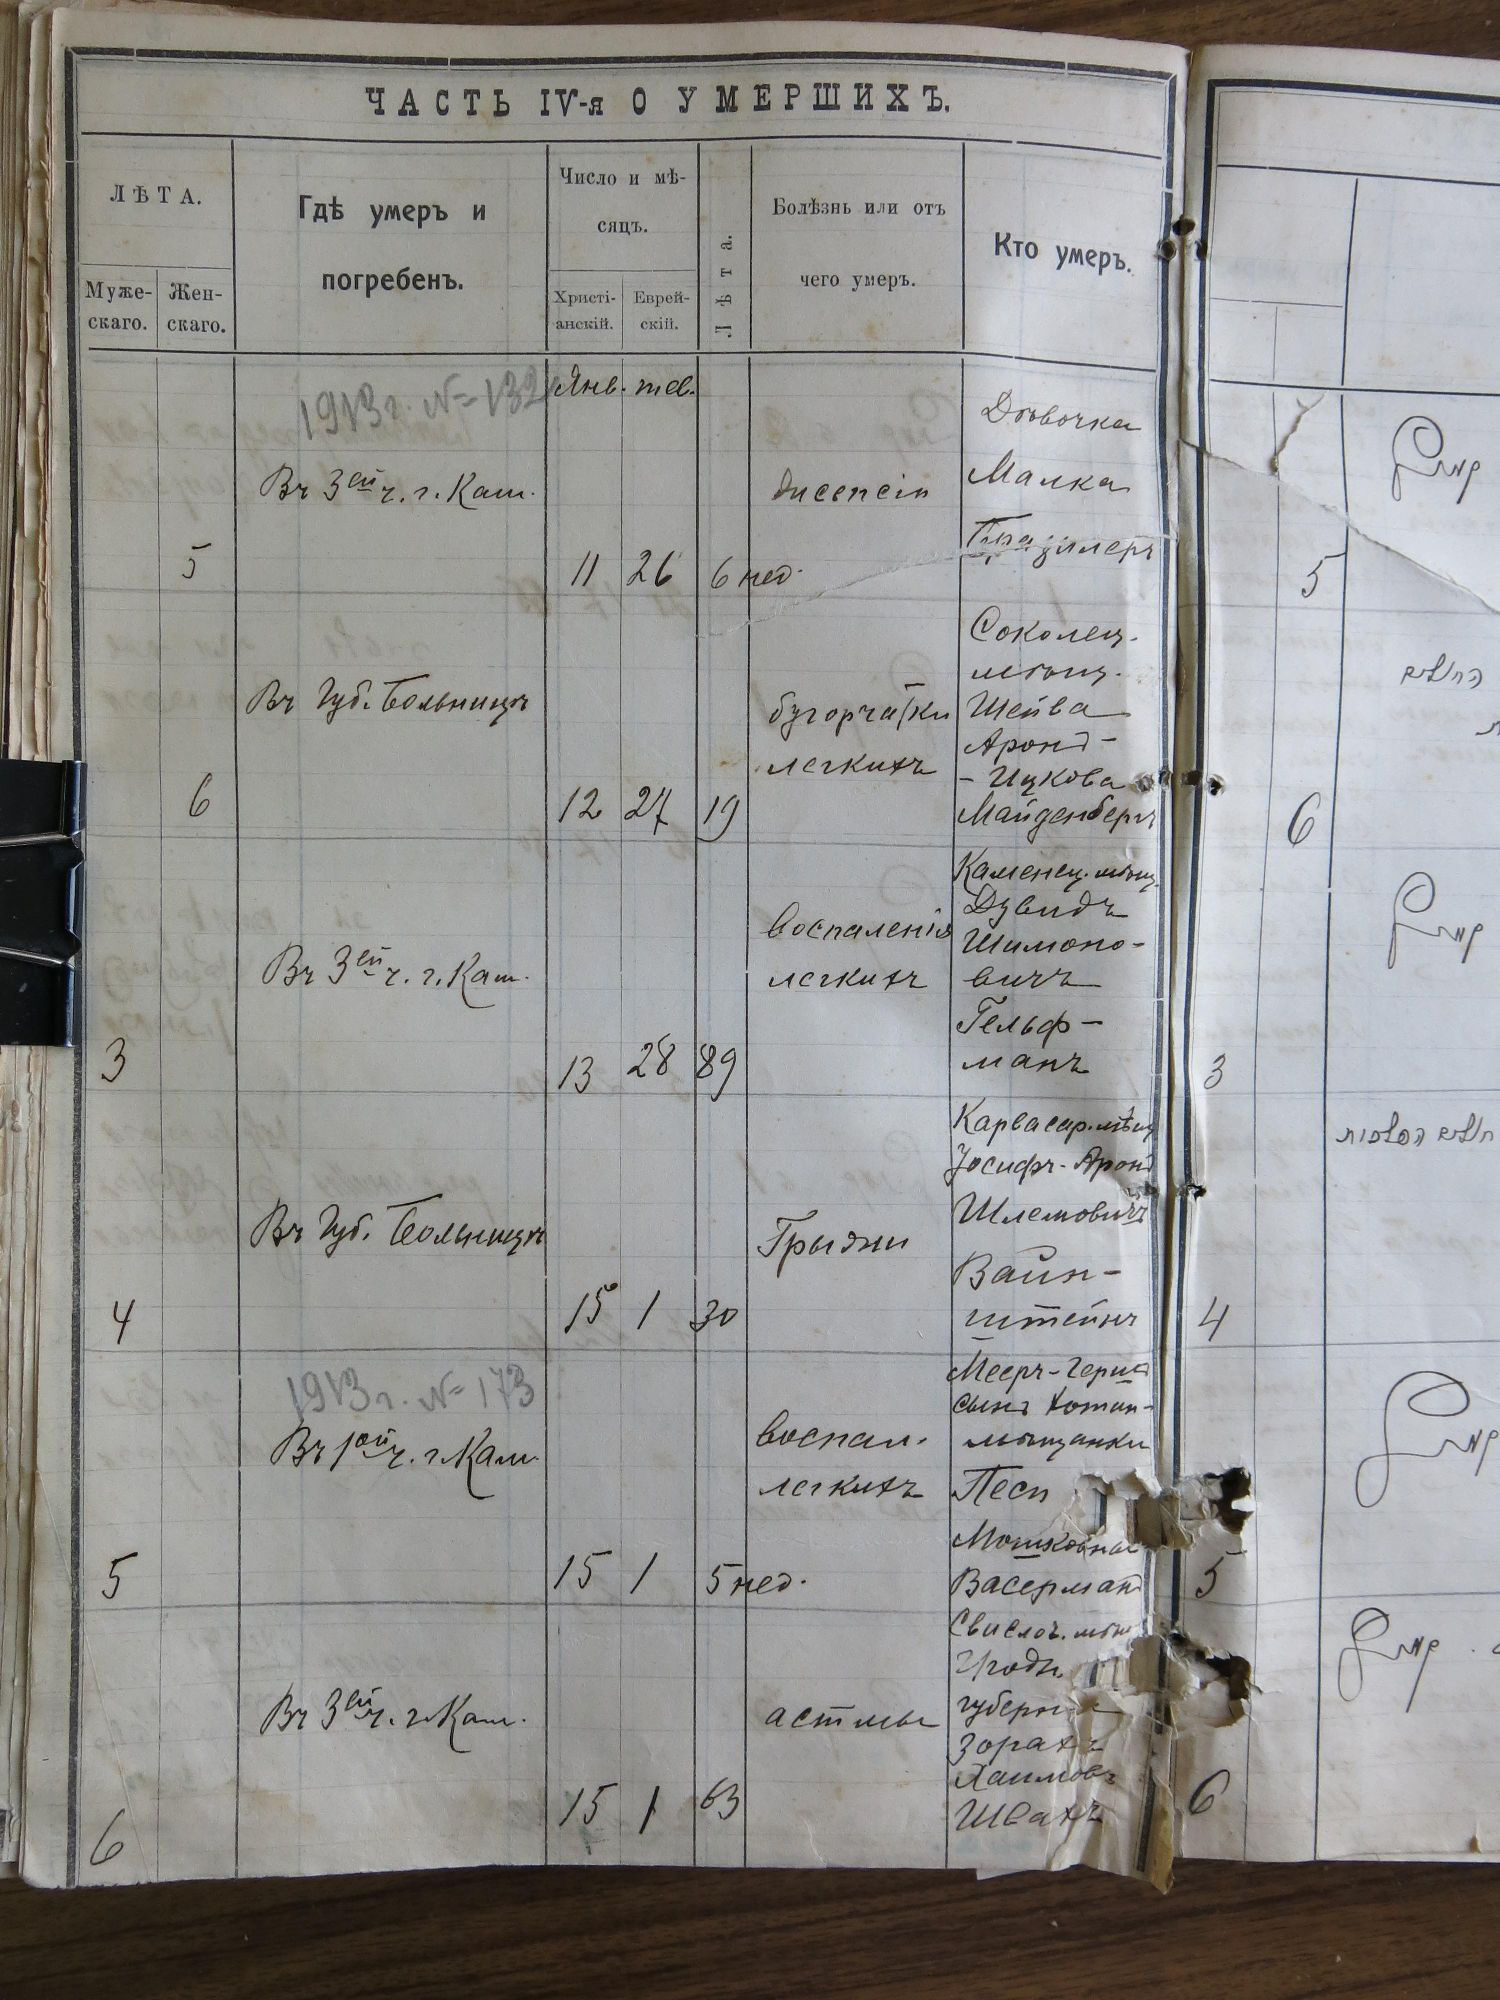 ЧАСТЬ IV-я О УМЕРШИХЪ.
ЛѢТА.
Муже-
скаго.
Жен-
скаго.
Гдѣ умеръ и
погребенъ.
Число и мѣ-
сяцъ.
Христі-
анскій.
Еврей-
скій.
Лѣта.
Болѣзнь или отъ
чего умеръ.
Кто умеръ.
1913 г. № 132
Янв. тев.
Въ 3ей ч. г. Кам.
5
11 26 6 нед.
Дѣвочка
Малка
Въ Губ. Больницѣ
6
12 27 19
бугорчатки
легкихъ
Соколец.
мѣщ.
Шейва
Аронъ-
- Ицкова
Майденбергъ
Въ 3ей ч. г. Кам.
3
13 28 89
воспаленія
легкихъ
Каменец. мѣщ.
Дувидъ
Шимоно-
вичъ
Гельф-
манъ
Въ Губ. Больницѣ
4
15 1 30
Грыжи
Карвасар. мѣщ
Іосифъ-Аронъ
Шлемовичъ
Вайн-
штейнъ
1913 г. № 173
Въ 1ой ч. г. Кам.
5
15 1 5 нед.
воспал.
легкихъ
Мееръ-Герш
сынъ Хотин-
мѣщанки
Песи
Мошковны
Васерманъ
Въ 3ей ч. г. Кам.
6
15 1 63
астмы
Свислоч. мѣщ
Гродн.
губерніи
Зорахъ
Хаимовъ
Швахъ
5
6
3
4
5
6